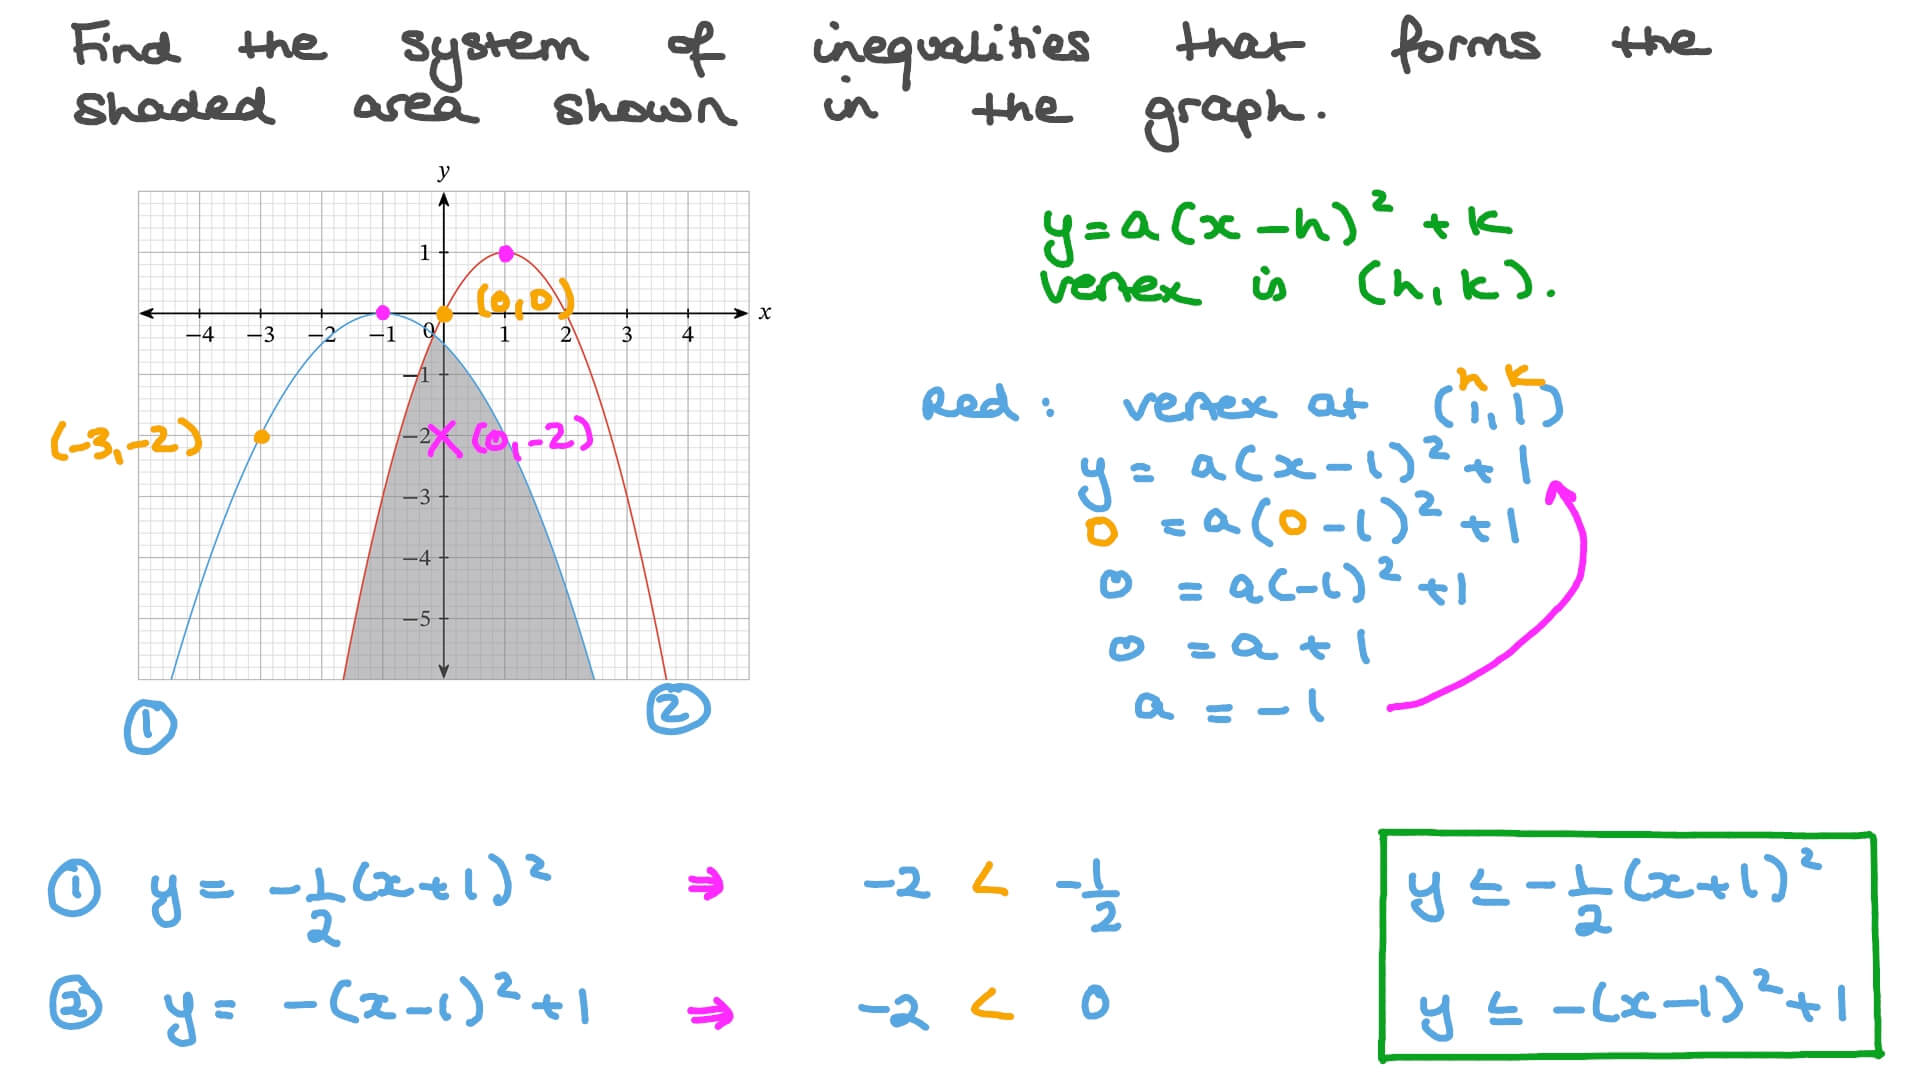 Find the system of inequalities that forms the
shaded area shown in the graph.
y
1
(0,0)
x
-4 -3 -2 -1 0 1 2 3 4
-1
(-3,-2)
-2 (0,-2)
-3
-4
-5
① ②
y=a(x-h)² + k
vertex is (h,k).
h k
Red: vertex at (1,1)
y = a(x-1)² + 1
0 = a(0-1)² + 1
0 = a(-1)² + 1
0 = a + 1
a = -1
① y = -1/2(x+1)² ⇒ -2 < -1/2
② y = -(x-1)²+1 ⇒ -2 < 0
y ≤ -1/2(x+1)²
y ≤ -(x-1)²+1